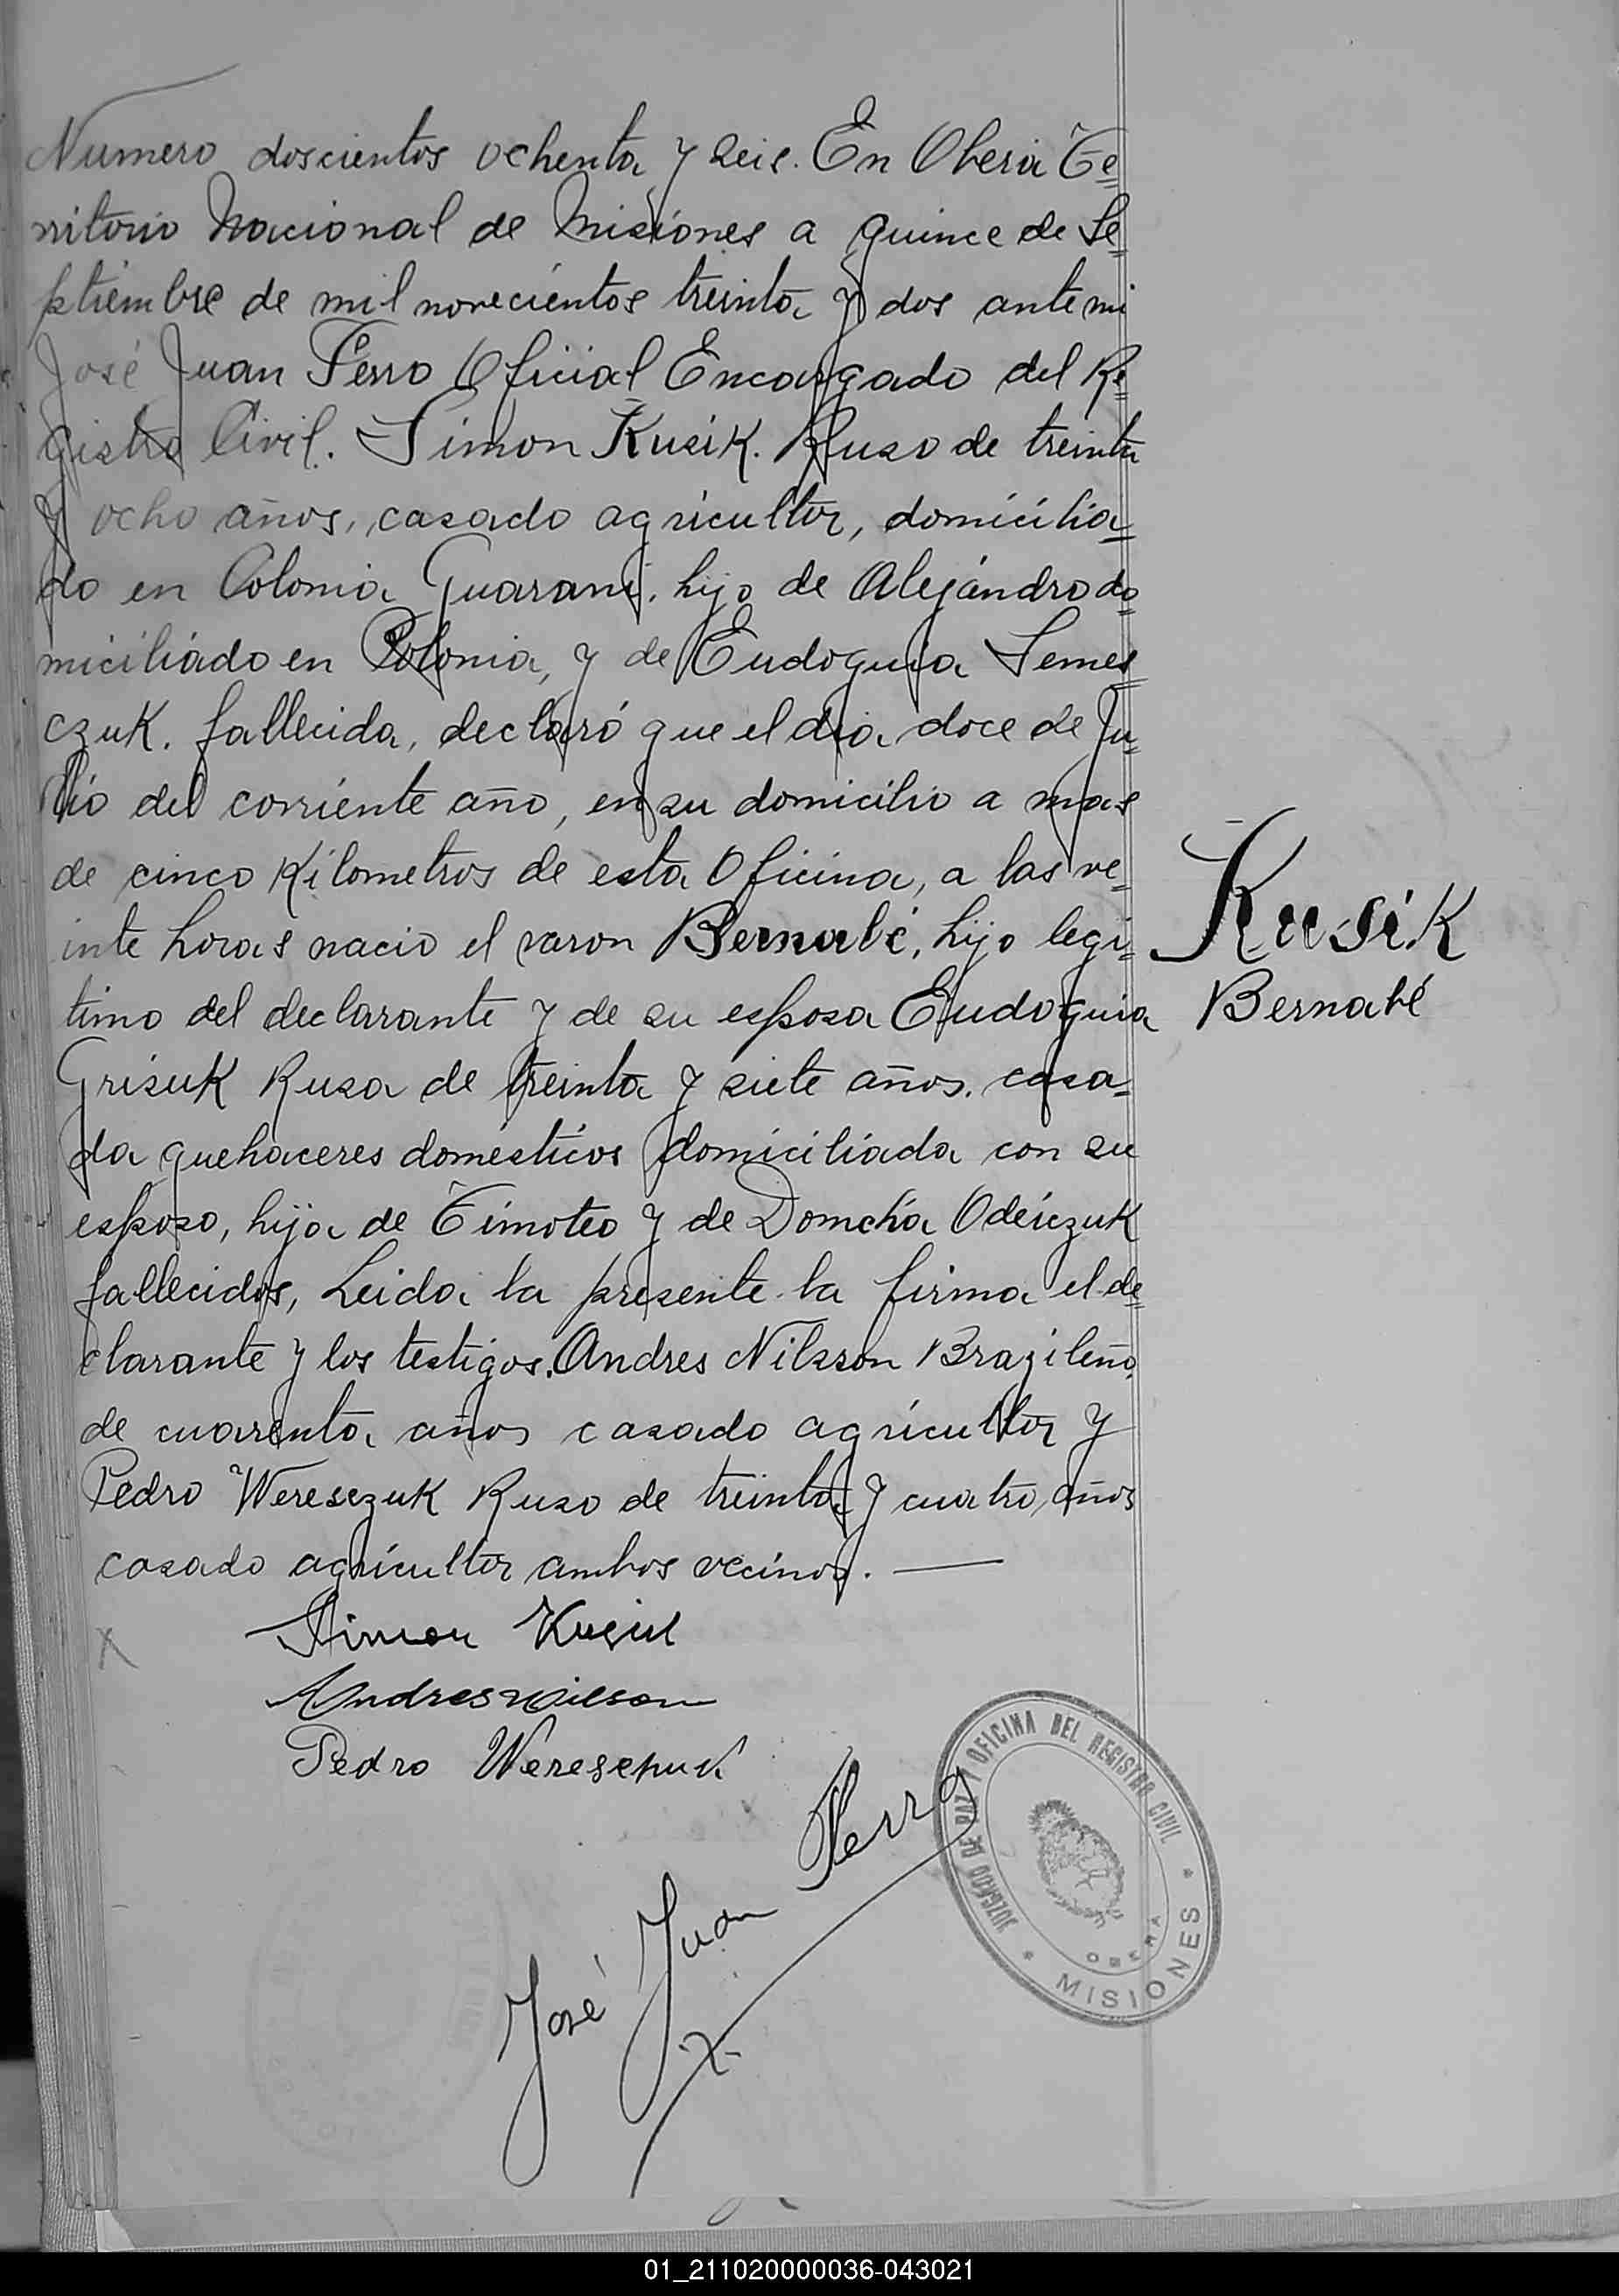 Numero doscientos ochenta y seis. En Oberá Te=
rritorio Nacional de Misiones a quince de Se=
ptiembre de mil novecientos treinta y dos ante mi
José Juan Ferro Oficial Encargado del Re=
gistro Civil. Simon Kusik. Ruso de treinta
y ocho años, casado agricultor, domicilia=
do en Colonia Guarani, hijo de Alejandro do=
miciliado en Polonia, y de Eudoquia Semes=
czuk. fallecida, declaró que el dia doce de Ju=
lio del corriente año, en su domicilio a mas
de cinco Kilometros de esta Oficina, a las ve=
inte horas nacio el varon Bernabé, hijo legi=
timo del declarante y de su esposa Eudoquia
Grisuk Rusa de treinta y siete años. casa=
da quehaceres domésticos domiciliada con su
esposo, hija de Timoteo y de Domcha Odeiczuk
fallecidos, Leida la presente la firma el de=
clarante y los testigos. Andres Nilsson Brazileño,
de cuarenta años casado agricultor y
Pedro Weresczuk Ruso de treinta y cuatro años
casado agricultor ambos vecinos. —
Kusik
Bernabé
Simon Kusik
Andres Nilsson
Pedro Wereschuk
José Juan Ferro
JUZGADO DE PAZ Y OFICINA DEL REGISTRO CIVIL
OBERA
* MISIONES *
01_211020000036-043021